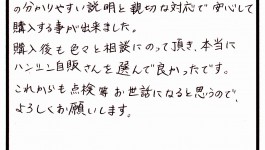 の分かりやすい説明と親切な対応で安心して
購入する事が出来ました。
購入後も色々と相談にのって頂き、本当に
ハンリン自販さんを選んで良かったです。
これからも点検等お世話になると思うので、
よろしくお願いします。